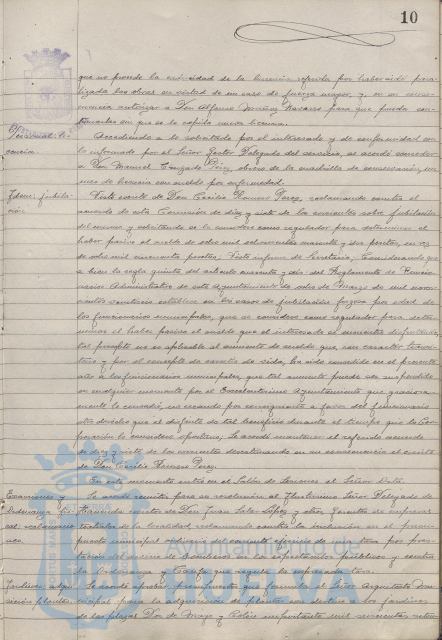 10
que no procede la caducidad de la licencia referida por haber sido para-
lizada las obras en virtud de un caso de fuerza mayor, y, en su conse-
cuencia autorizar a Don Alfonso Muñoz Navarro para que pueda con-
tinuarlas sin que se le expida nueva licencia.
Personal: li-
cencia.
Accediendo a lo solicitado por el interesado y de conformidad con
lo informado por el Señor Gestor Delegado del servicio, se acordó conceder
a Don Manuel Díaz, obrero de la cuadrilla de conservación, un
mes de licencia con sueldo por enfermedad.
Idem: jubila-
ción.
Visto escrito de Don Cecilio Romero Pérez, reclamando contra el
acuerdo de esta Comisión de diez y siete de los corrientes sobre jubilación
del mismo y solicitando se le considere como regulador para determinar el
haber pasivo el sueldo de ocho mil setecientas noventa y seis pesetas, en vez
de ocho mil cincuenta pesetas; Visto informe de Secretaría; Considerando que
si bien la regla quinta del artículo cuarenta y dos del Reglamento de Funcio-
narios Administrativos de este Ayuntamiento de ocho de Marzo de mil nove-
cientos veintiocho establece en los casos de jubilación forzosa por edad de
los funcionarios municipales, que se considere como regulador para deter-
minar el haber pasivo el sueldo que el interesado se encuentre disfrutando,
tal precepto no es aplicable al aumento de sueldo que con caracter transi-
torio y por el concepto de carestía de vida, ha sido concedido en el presente
año a los funcionarios municipales, que tal aumento puede ser suspendido
en cualquier momento por el Excelentísimo Ayuntamiento que graciosa-
mente lo concedió, no creando por consiguiente a favor del funcionario
otro derecho que el disfrute de tal beneficio durante el tiempo que la Cor-
poración lo considere oportuno; Se acordó mantener el referido acuerdo
de diez y siete de los corrientes desestimando en su consecuencia el escrito
de Don Cecilio Romero Pérez.
En este momento entra en el Salón de Sesiones el Señor Oliva.
Exacciones y
Ordenanzas fis-
cal. reclamacio-
nes.
Se acordó remitir para su resolución al Ilustrísimo Señor Delegado de
Hacienda escrito de Don Juan López y otros, Gerentes de empresas
teatrales de la localidad, reclamando contra la inclusión en el presu-
puesto municipal ordinario del corriente ejercicio de una tasa por pres-
tación del servicio de Bomberos en los espectáculos públicos y contra
la Ordenanza y Tarifa que regula la expresada tasa.
Jardines: adqui-
sición plantas.
Se acordó aprobar presupuesto que formula el Señor Arquitecto Mu-
nicipal para la adquisición de plantas con destino a los jardines
de las plazas Dos de Mayo y Colón importante mil seiscientas setenta
Ayuntamiento de
HUELVA